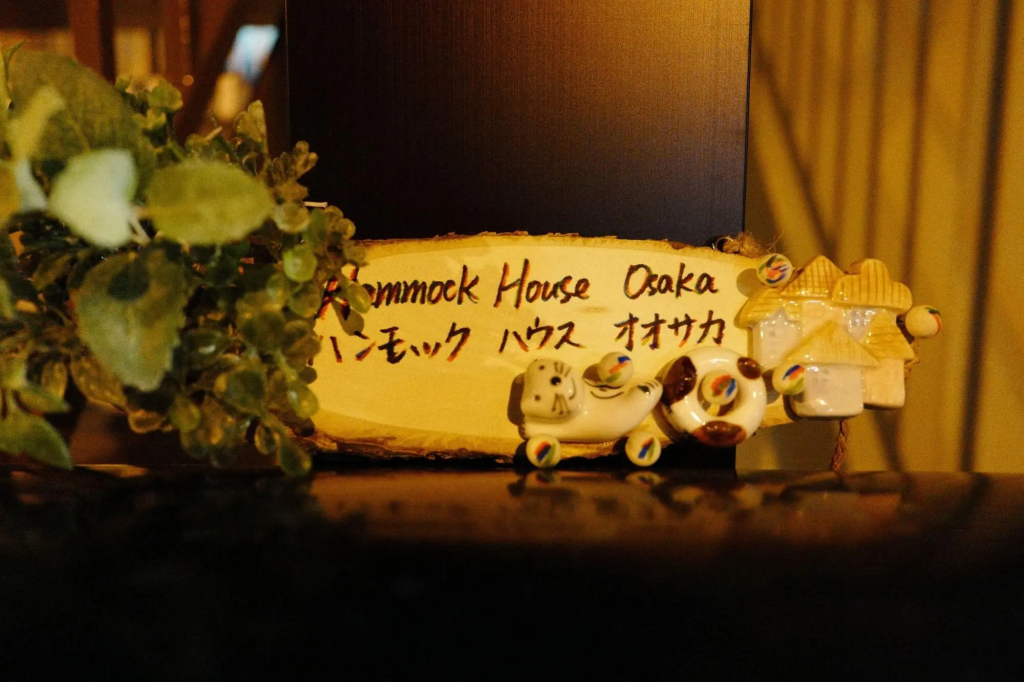 Hammock House Osaka
ハンモック ハウス オオサカ